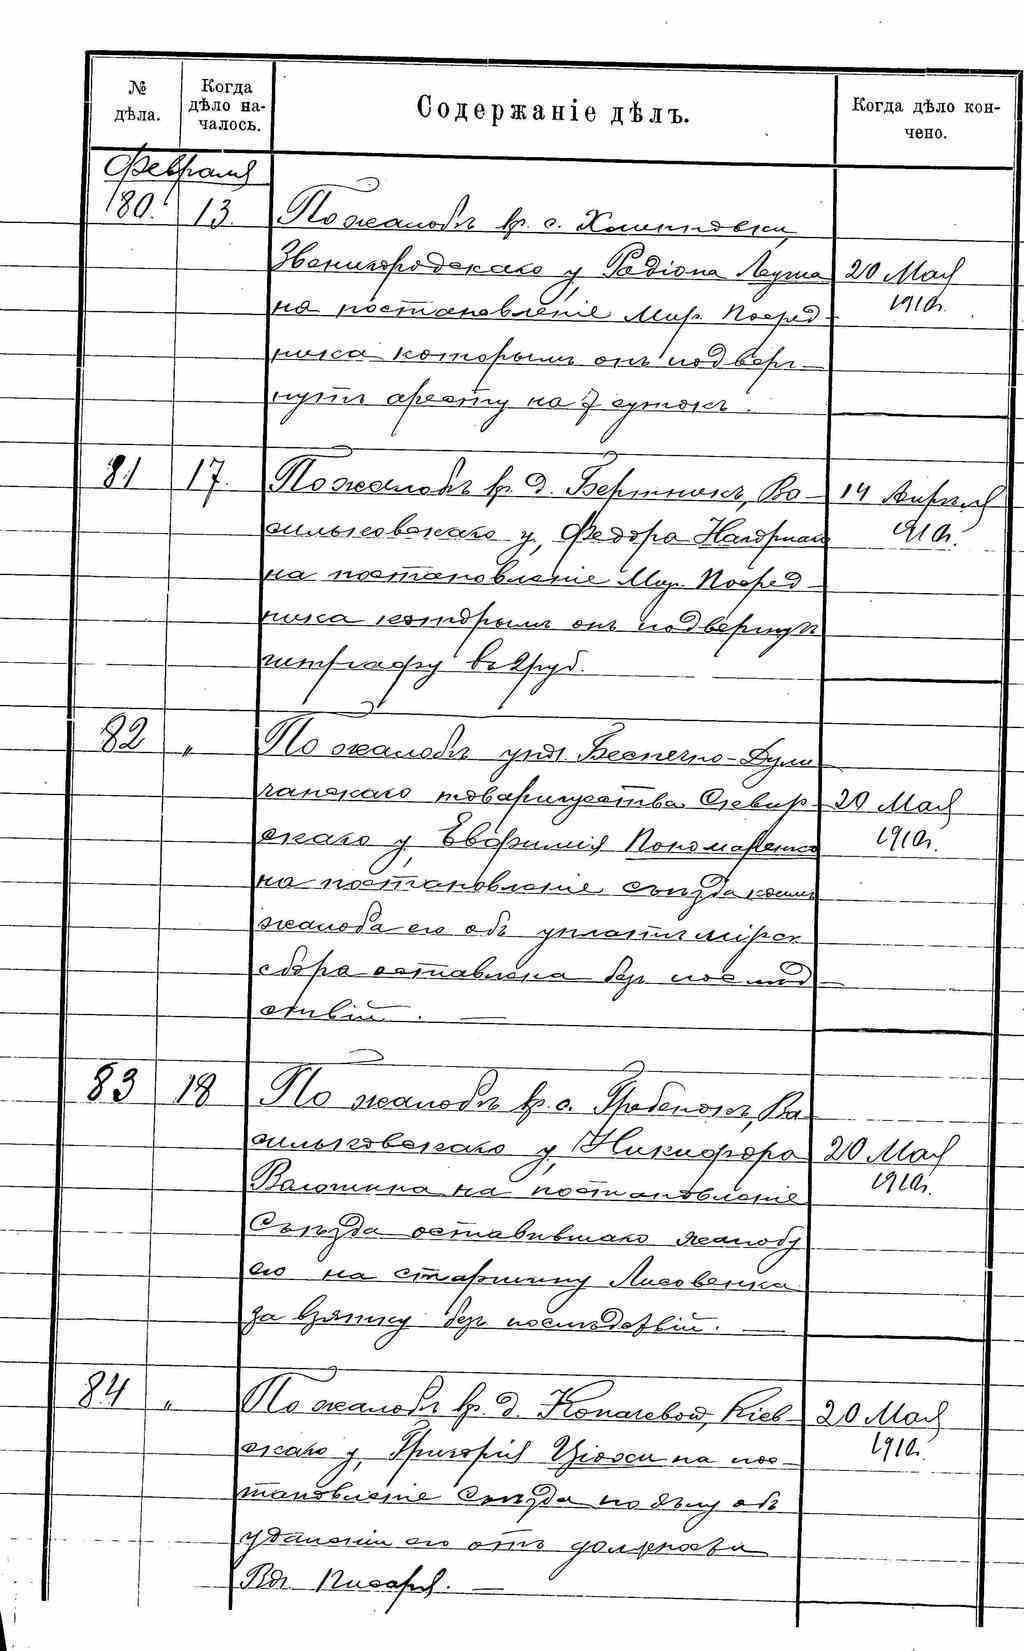 № дѣла.
Когда дѣло началось.
Содержаніе дѣлъ.
Когда дѣло кончено.
Февраля
80. 13. По жалобѣ кр. с.
Звенигородскаго у, Радіона 20 Мая
на постановленіе Мир. Посред- 1910г.
ника которымъ онъ подверг-
нутъ аресту на 7 сутокъ.
81 17. По жалобѣ кр. д. Бертникъ, Ва- 14 Апрѣля
сильковскаго у, Федора 1910г.
на постановленіе Мир. Посред-
ника которымъ онъ подвергнутъ
штрафу въ 2 руб.
82 „ По жалобѣ упол. Беспечно-Дули
чанскаго товарищества Сквир- 20 Мая
скаго у, Евфимія Пономаренко 1910г.
на постановленіе съѣзда коимъ
жалоба его объ уплатѣ мірск.
сбора оставлена безъ послѣд-
ствій. —
83 18 По жалобѣ кр. с. Гребенокъ, Ва-
сильковскаго у, Никифора 20 Мая
Волошина на постановленіе 1910г.
Съѣзда оставившаго жалобу
его на старшину Лисовенка
за взятку безъ послѣдствій. —
84 „ По жалобѣ кр. д. Копачевой, Кіев- 20 Мая
скаго у, Григорія на пос- 1910г.
тановленіе Съѣзда по дѣлу объ
удаленіи его отъ должности
Вол. Писаря. —